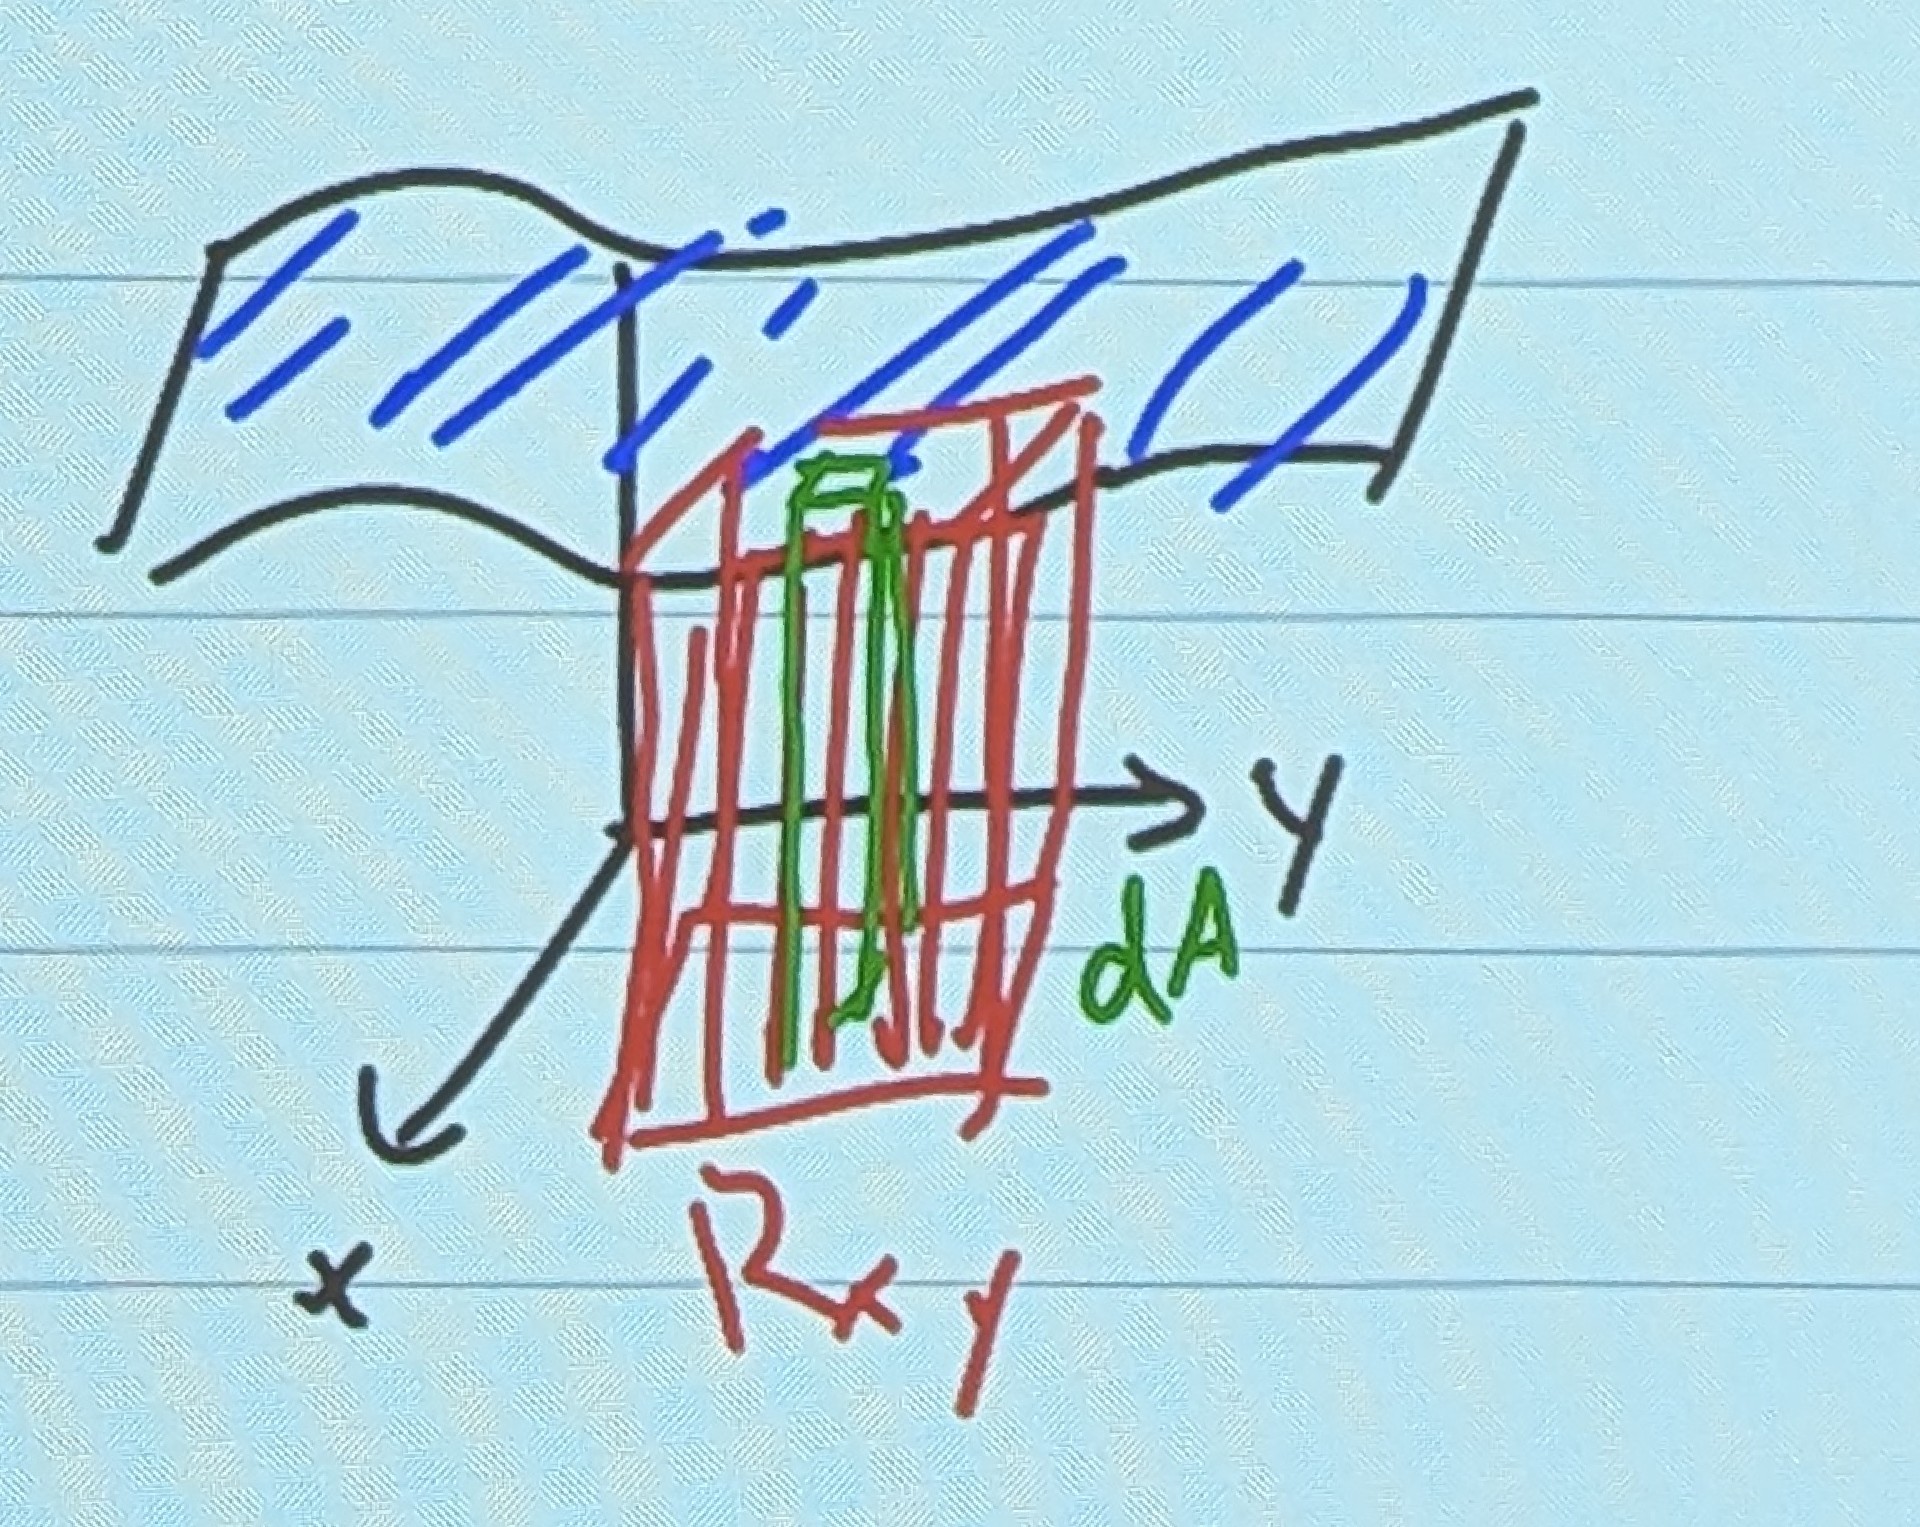 y
dA
x
Rxy